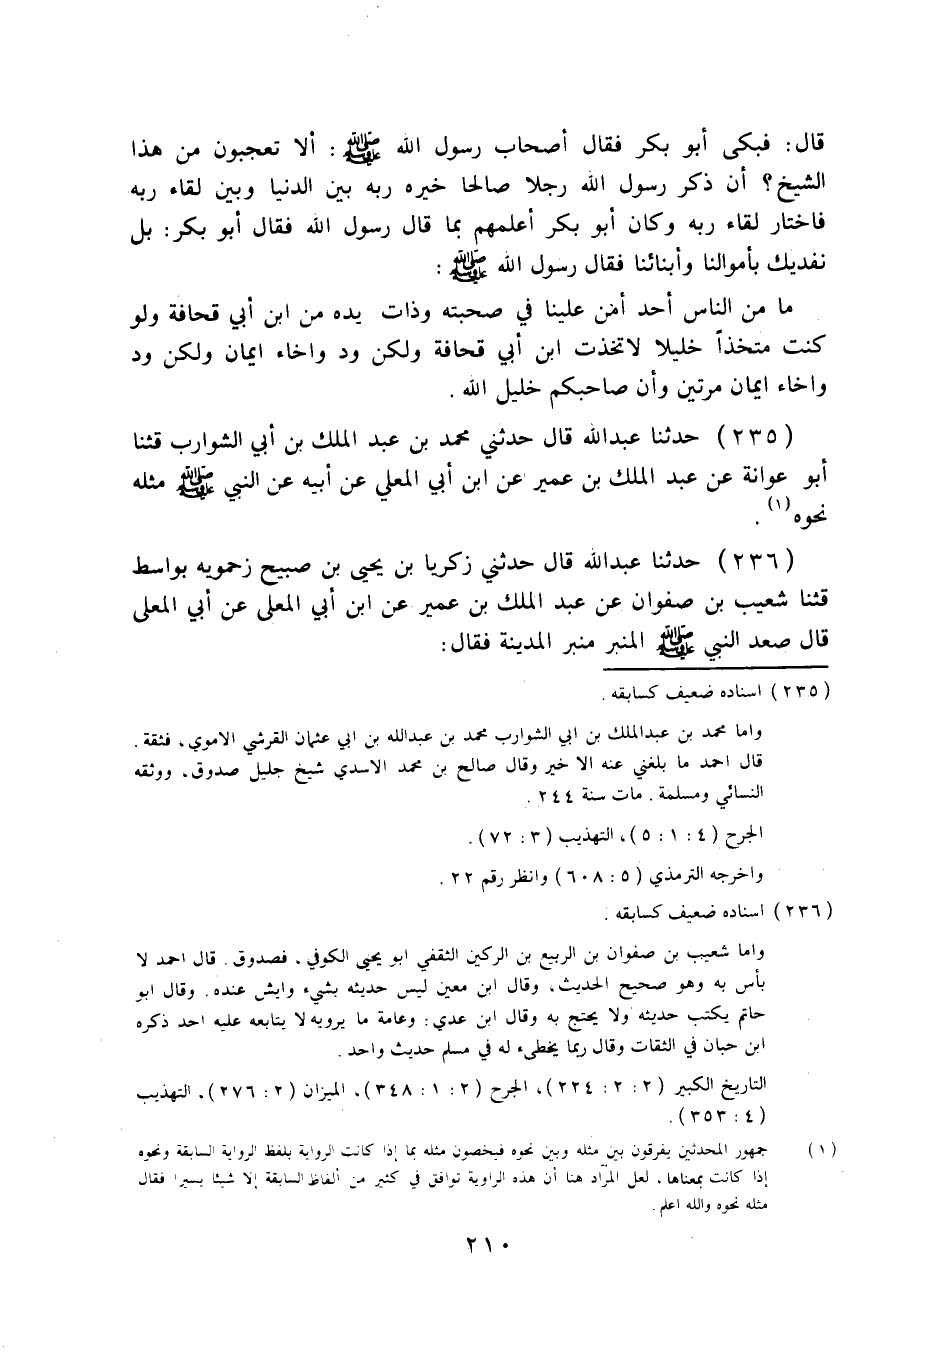 قال: فبكى أبو بكر فقال أصحاب رسول الله ﷺ : ألا تعجبون من هذا
الشيخ؟ أن ذكر رسول الله رجلا صالحا خيره ربه بين الدنيا وبين لقاء ربه
فاختار لقاء ربه وكان أبو بكر أعلمهم بما قال رسول الله فقال أبو بكر: بل
نفديك بأموالنا وأبنائنا فقال رسول الله ﷺ :
ما من الناس أحد أمن علينا في صحبته وذات يده من ابن أبي قحافة ولو
كنت متخذاً خليلا لاتخذت ابن أبي قحافة ولكن ود واخاء ايمان ولكن ود
واخاء ايمان مرتين وأن صاحبكم خليل الله .
(٢٣٥) حدثنا عبدالله قال حدثني محمد بن عبد الملك بن أبي الشوارب قثنا
أبو عوانة عن عبد الملك بن عمير عن ابن أبي المعلي عن أبيه عن النبي ﷺ مثله
نحوه (١) .
(٢٣٦) حدثنا عبدالله قال حدثني زكريا بن يحيى بن صبيح زحمويه بواسط
قثنا شعيب بن صفوان عن عبد الملك بن عمير عن ابن أبي المعلى عن أبي المعلى
قال صعد النبي ﷺ المنبر منبر المدينة فقال:
(٢٣٥) اسناده ضعيف كسابقه .
واما محمد بن عبدالملك بن ابي الشوارب محمد بن عبدالله بن ابي عثمان القرشي الاموي، فثقة .
قال احمد ما بلغني عنه الا خير وقال صالح بن محمد الاسدي شيخ جليل صدوق، ووثقه
النسائي ومسلمة . مات سنة ٢٤٤ .
الجرح (٤ : ١ : ٥)، التهذيب (٣ : ٧٢) .
واخرجه الترمذي (٥ : ٦٠٨) وانظر رقم ٢٢ .
(٢٣٦) اسناده ضعيف كسابقه .
واما شعيب بن صفوان بن الربيع بن الركين الثقفي ابو يحيى الكوفي ، فصدوق . قال احمد لا
بأس به وهو صحيح الحديث، وقال ابن معين ليس حديثه بشيء وايش عنده . وقال ابو
حاتم يكتب حديثه ولا يحتج به وقال ابن عدي: وعامة ما يرويه لا يتابعه عليه احد ذكره
ابن حبان في الثقات وقال ربما يخطىء له في مسلم حديث واحد .
التاريخ الكبير (٢ : ٢ : ٢٢٤)، الجرح (٢ : ١ : ٣٤٨)، الميزان (٢ : ٢٧٦)، التهذيب
(٤ : ٣٥٣) .
(١) جمهور المحدثين يفرقون بين مثله وبين نحوه فيخصون مثله بما إذا كانت الرواية بلفظ الرواية السابقة ونحوه
إذا كانت بمعناها، لعل المرّاد هنا أن هذه الراوية توافق في كثير من ألفاظ السابقة إلا شيئا يسيرا فقال
مثله نحوه والله اعلم .
٢١٠